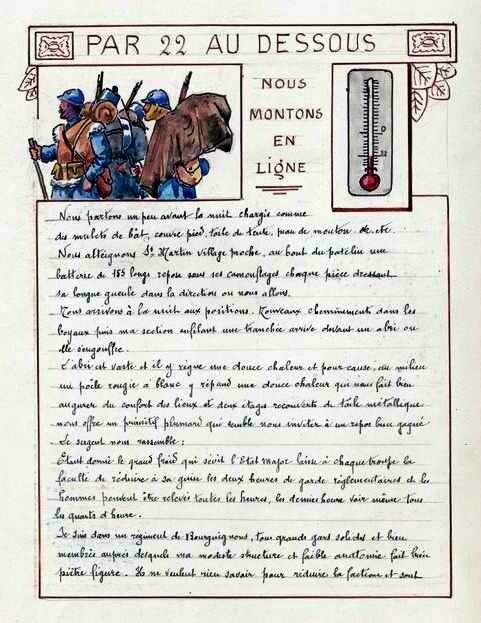 PAR 22 AU DESSOUS
NOUS
MONTONS
EN
LIGNE
0
22
Nous partons un peu avant la nuit chargés comme
des mulets de bât, couvre pied, toile de tente, peau de mouton etc. etc.
Nous atteignons St Martin village proche, au bout du patelin une
batterie de 155 longs repose sous ses camouflages chaque pièce dressant
sa longue gueule dans la direction ou nous allons.
Nous arrivons à la nuit aux positions. Nouveaux cheminements dans les
boyaux puis ma section enfilant une tranchée arrive devant un abri ou
elle s'engouffre.
L'abri est vaste et il y règne une douce chaleur et pour cause, au milieu
un poile rougie à blanc y répand une douce chaleur qui nous fait bien
augurer du confort des lieux et deux étages recouverts de toile métallique
nous offre un primitif plumard qui semble nous inviter à un repos bien gagné
Le sergent nous rassemble :
Etant donné le grand froid qui sévit l'Etat Major laisse à chaque troupe la
faculté de réduire à sa guise les deux heures de garde réglementaires et les
hommes peuvent être relevés toutes les heures, les demies heures voir même tous
les quarts d'heure.
Je suis dans un régiment de Bourguignons, tous grands gars solides et bien
membrés auprès desquels ma modeste structure et faible anatomie fait bien
piètre figure. Ils ne veulent rien savoir pour réduire la faction et sont